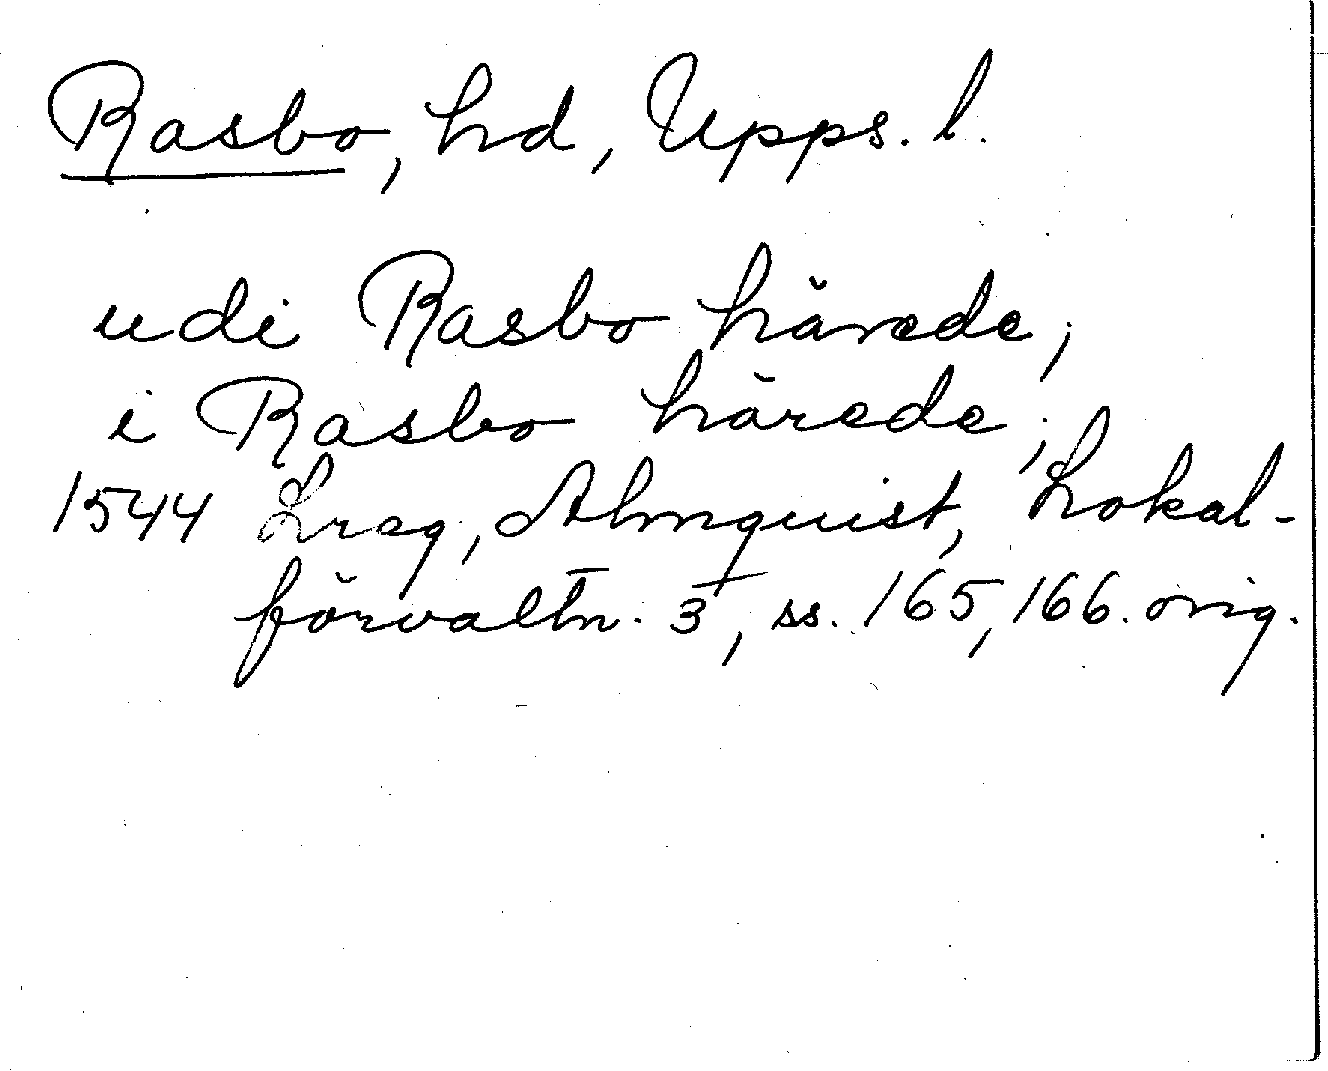 Rasbo, hd, Upps. l.
udi Rasbo härede,
i Rasbo härede,
1544 Lreg, Almquist, Lokal-
förvaltn. 3, ss. 165, 166. orig.